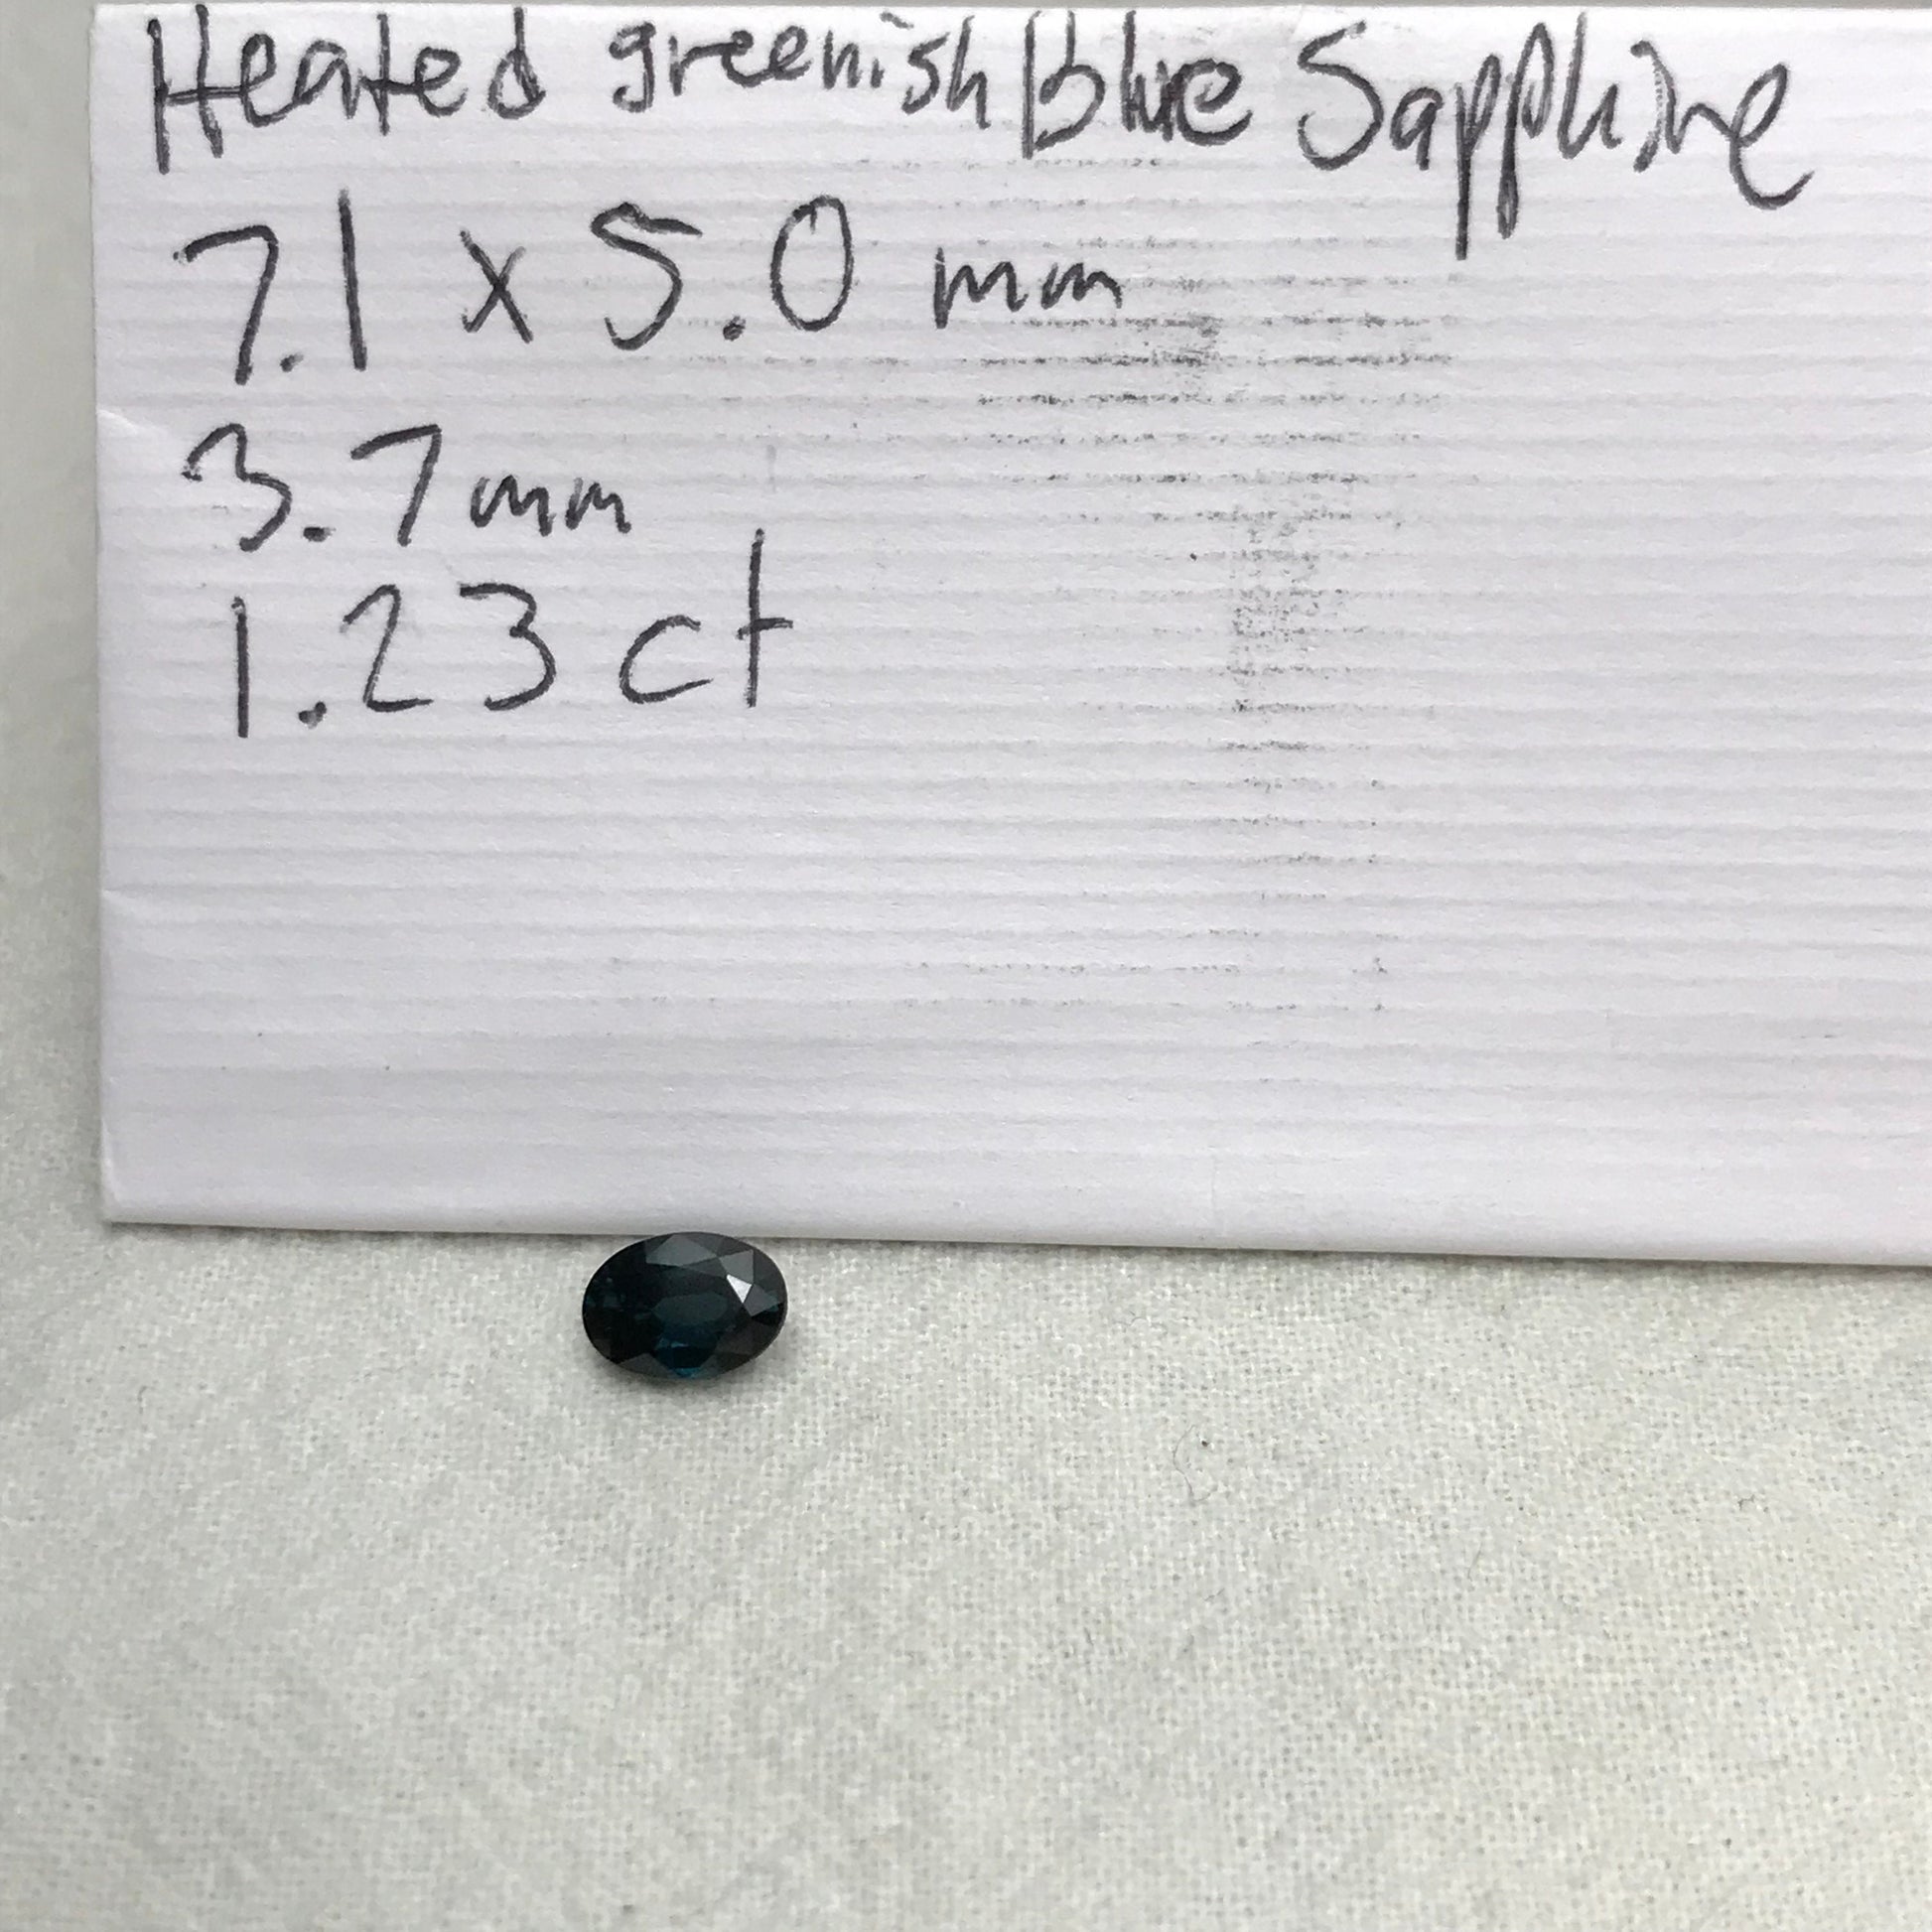 Heated greenish Blue Sapphire
7.1 x 5.0 mm
3.7mm
1.23 ct